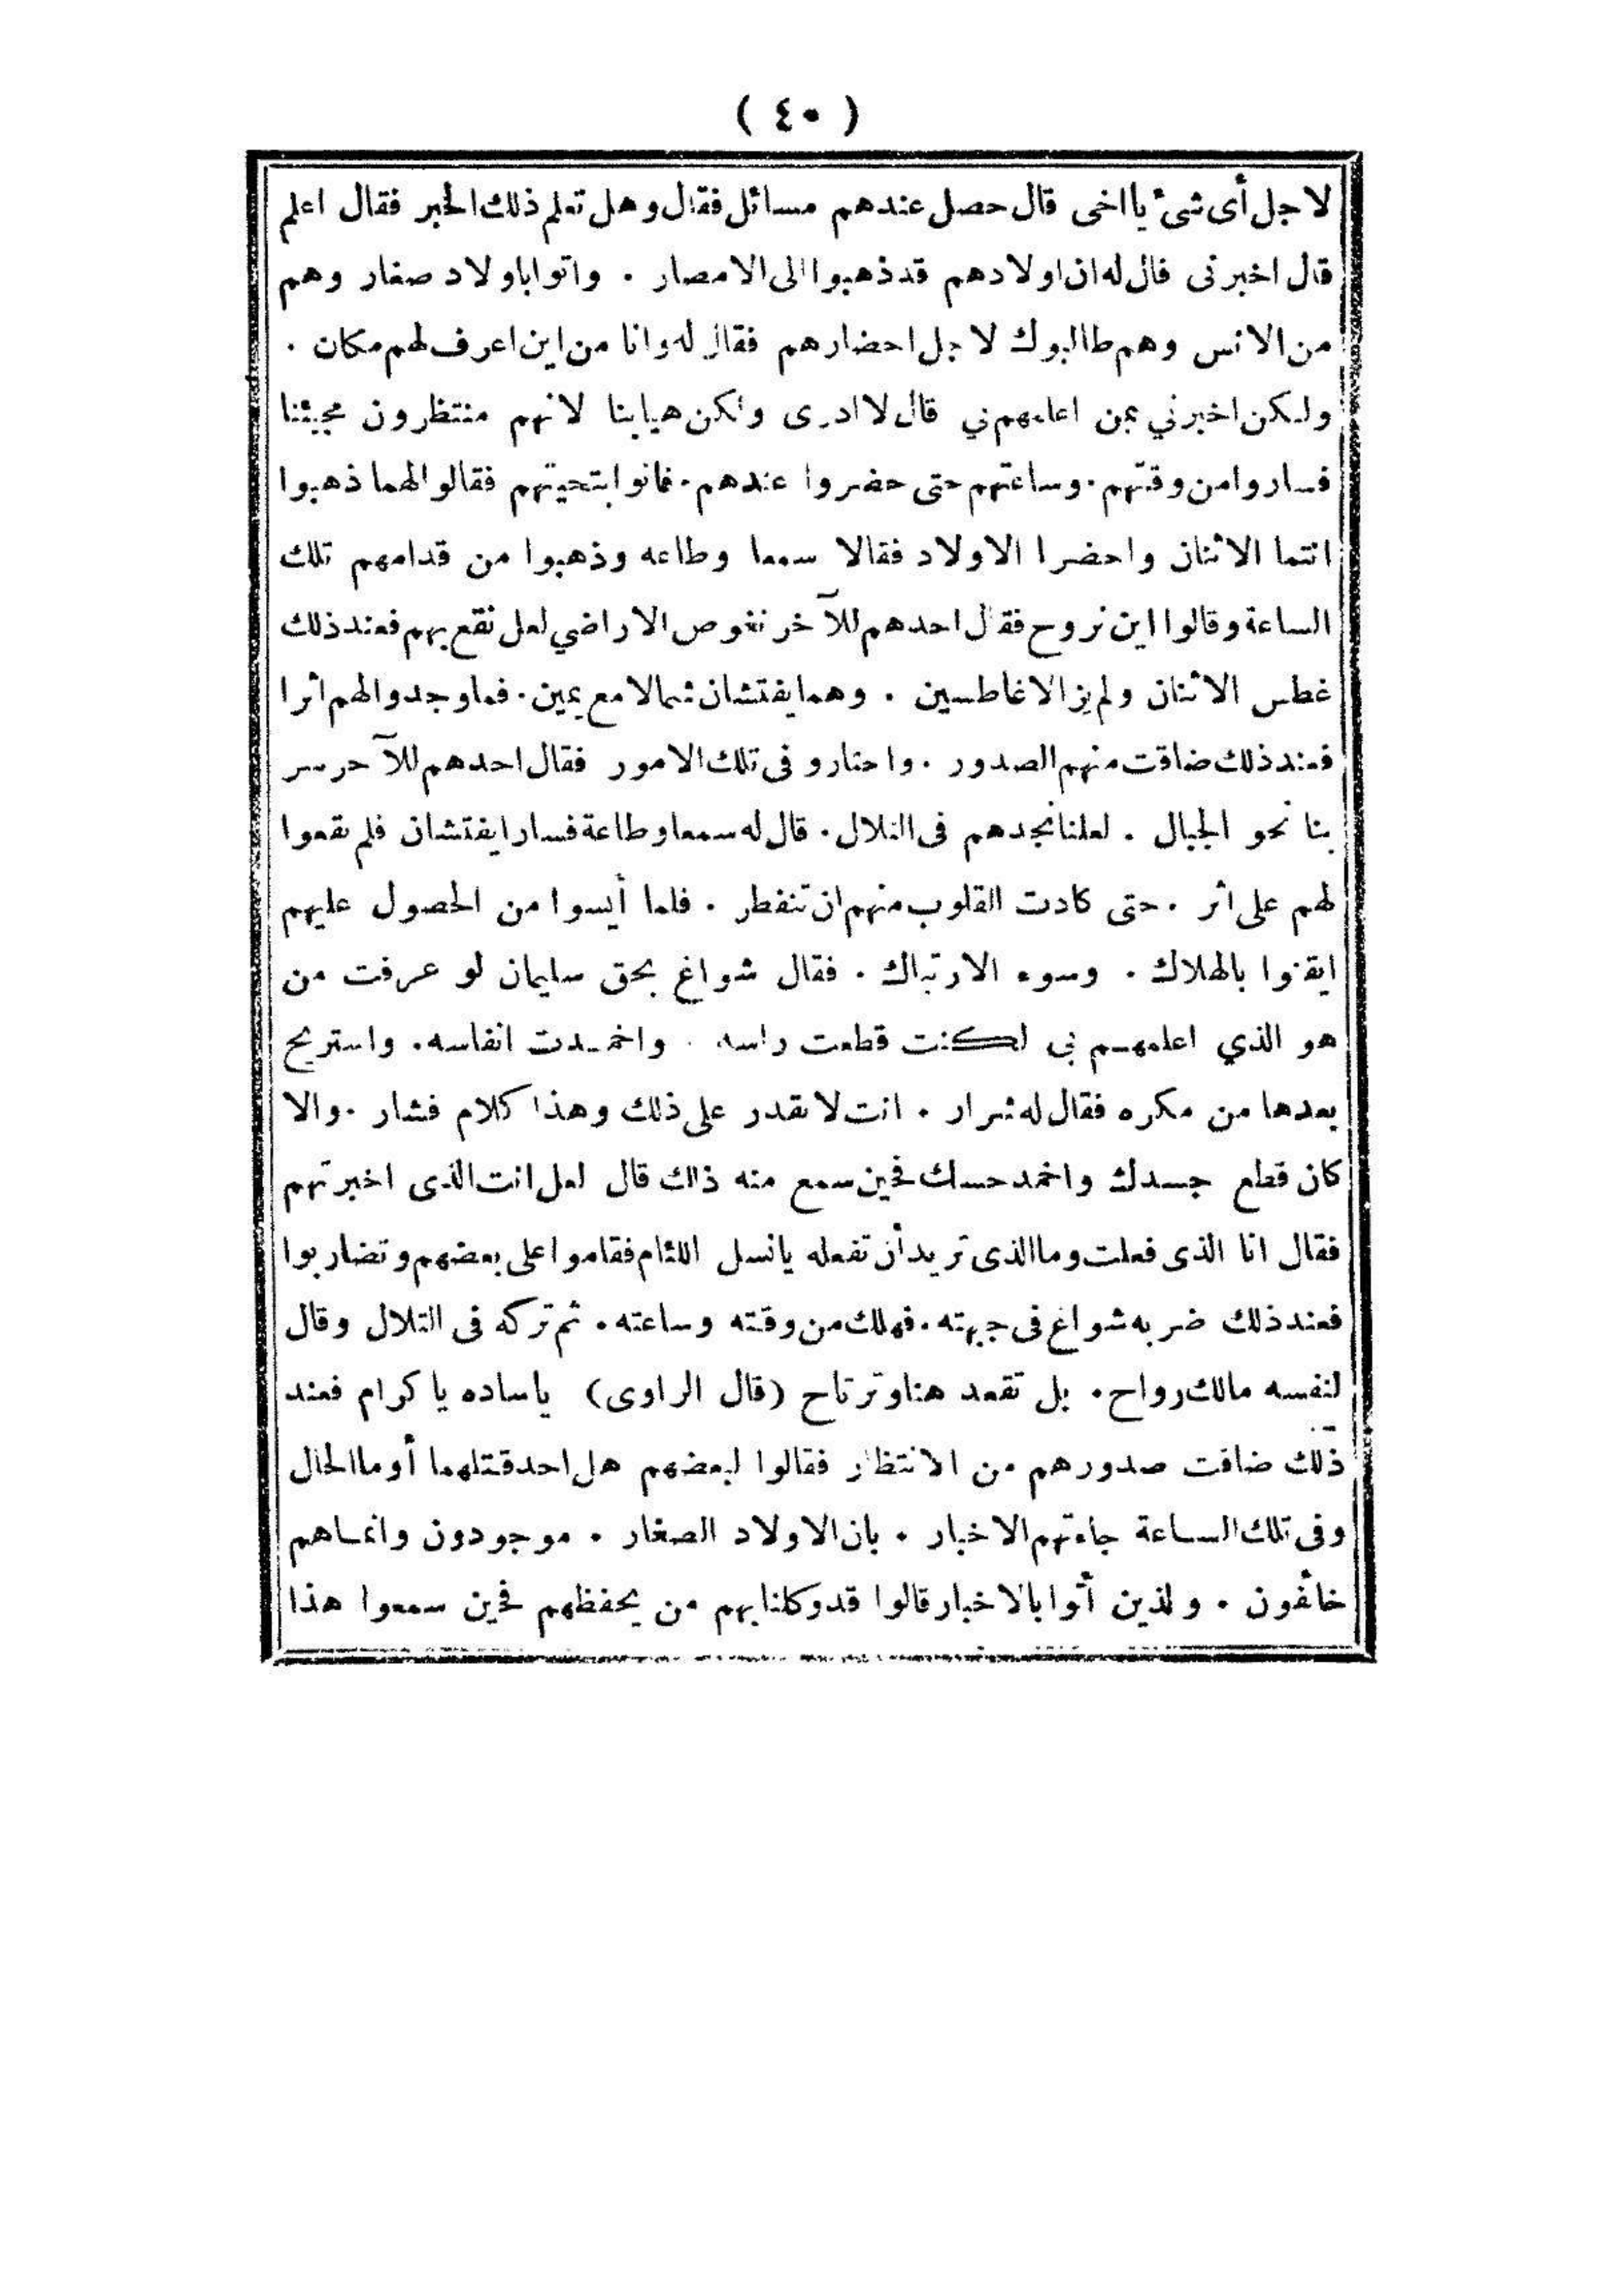 ( ٤٠ )
لاجل أى شئ يااخى قال حصل عندهم مسائل فقال وهل تعلم ذلك الخبر فقال اعلم
قال اخبرنى قال له ان اولادهم قد ذهبوا الى الامصار . واتوا باولاد صغار وهم
من الانس وهم طالبوك لاجل احضارهم فقال له وانا من اين اعرف لهم مكان .
ولكن اخبرني بمن اعلمهم ني قال لا ادرى ولكن هيا بنا لانهم منتظرون مجيئنا
فساروا من وقتهم . وساعتهم حتى حضروا عندهم . فاتوا بتحيتهم فقالوا لهما ذهبوا
انتما الاثنان واحضرا الاولاد فقالا سمعا وطاعه وذهبوا من قدامهم تلك
الساعة وقالوا اين نروح فقال احدهم للآخر نغوص الاراضي لعل نقع بهم فعند ذلك
غطس الاثنان ولم يزالا غاطسين . وهما يفتشان شمالا مع يمين . فما وجدوا لهم اثرا
فعند ذلك ضاقت منهم الصدور . واحتارو فى تلك الامور فقال احدهم للآخر سر
بنا نحو الجبال . لعلنا نجدهم فى التلال . قال له سمعا وطاعة فسارا يفتشان فلم يقعوا
لهم على اثر . حتى كادت القلوب منهم ان تنفطر . فلما أيسوا من الحصول عليهم
ايقنوا بالهلاك . وسوء الارتباك . فقال شواغ بحق سليمان لو عرفت من
هو الذي اعلمهم بى لكنت قطعت راسه . واخمدت انفاسه . واستريح
بعدها من مكره فقال له شرار . انت لا تقدر على ذلك وهذا كلام فشار . والا
كان قطع جسدك واخمد حسك فحين سمع منه ذالك قال لعل انت الذى اخبرتهم
فقال انا الذى فعلت وما الذى تريد أن تفعله يانسل اللئام فقاموا على بعضهم وتضاربوا
فعند ذلك ضربه شواغ فى جبهته . فهلك من وقته وساعته . ثم تركه فى التلال وقال
لنفسه مالك رواح . بل تقعد هنا وترتاح (قال الراوى) ياساده يا كرام فعند
ذلك ضاقت صدورهم من الانتظار فقالوا لبعضهم هل احد قتلهما أو ما الحال
وفى تلك الساعة جاءتهم الاخبار . بان الاولاد الصغار . موجودون وانماهم
خائفون . ولذين أتوا بالاخبار قالوا قد وكلنا بهم من يحفظهم فحين سمعوا هذا